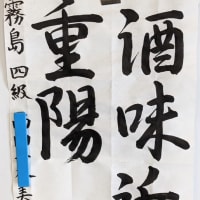 酒味
重陽
霧島 四級 美